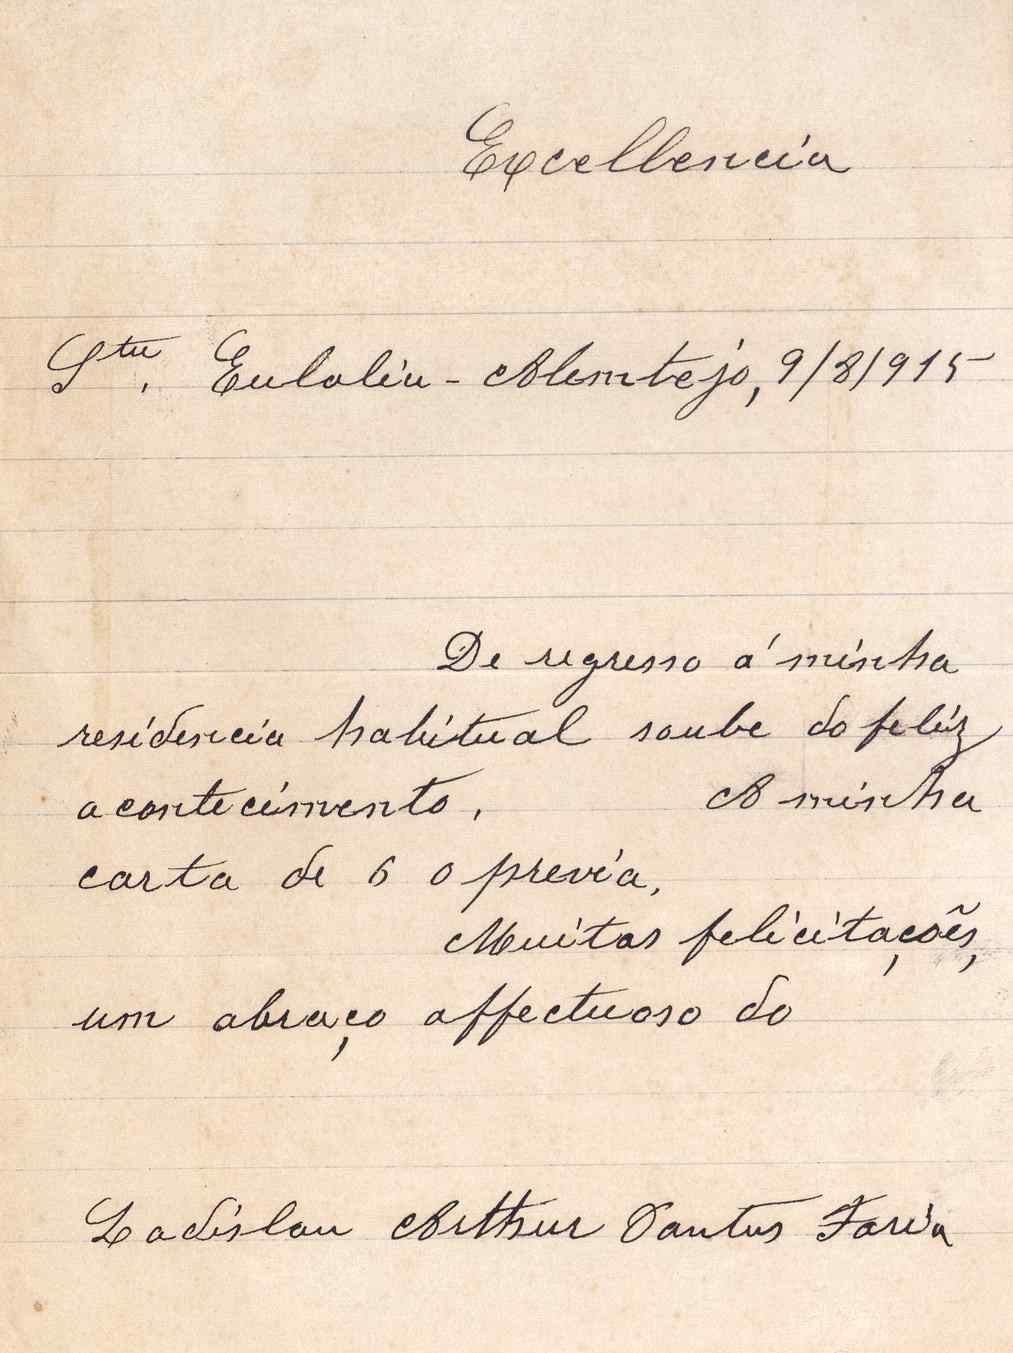 Excellencia
Sta. Eulalia - Alemtejo, 9/8/915
De regresso á minha
residencia habitual soube do feliz
acontecimento. A minha
carta de 6 o previa.
Muitas felicitações,
um abraço affectuoso do
Ladislau Arthur Santos Faria